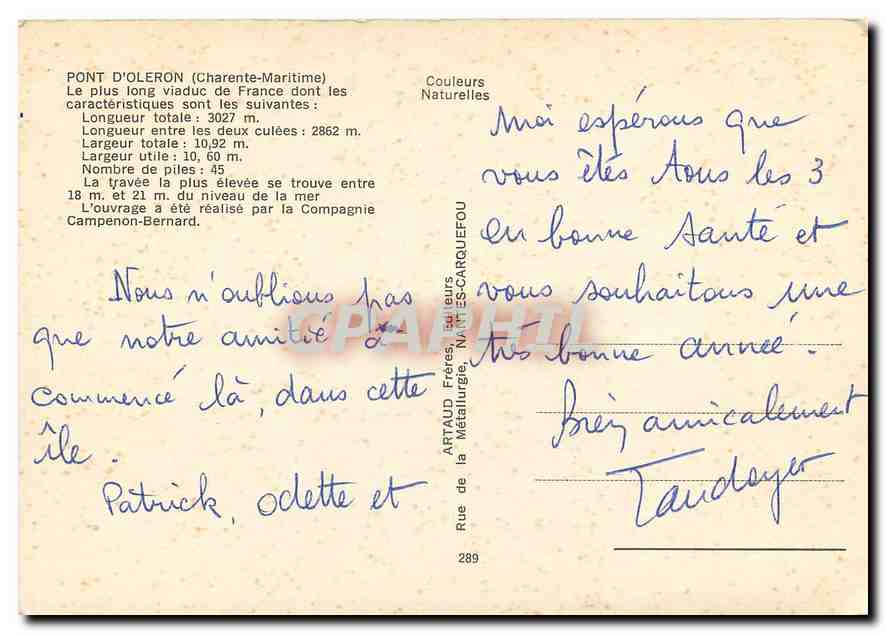 PONT D'OLERON (Charente-Maritime)
Le plus long viaduc de France dont les
caractéristiques sont les suivantes :
Longueur totale : 3027 m.
Longueur entre les deux culées : 2862 m.
Largeur totale : 10,92 m.
Largeur utile : 10, 60 m.
Nombre de piles : 45
La travée la plus élevée se trouve entre
18 m. et 21 m. du niveau de la mer
L'ouvrage a été réalisé par la Compagnie
Campenon-Bernard.
Nous n'oublions pas
que notre amitié a
commencé là, dans cette
île.
Patrick, Odette et
Couleurs
Naturelles
ARTAUD Frères, Editeurs
Rue de la Métallurgie, NANTES-CARQUEFOU
289
moi espérons que
vous êtes tous les 3
en bonne santé et
vous souhaitons une
très bonne année.
Bien amicalement
CPAPHIL